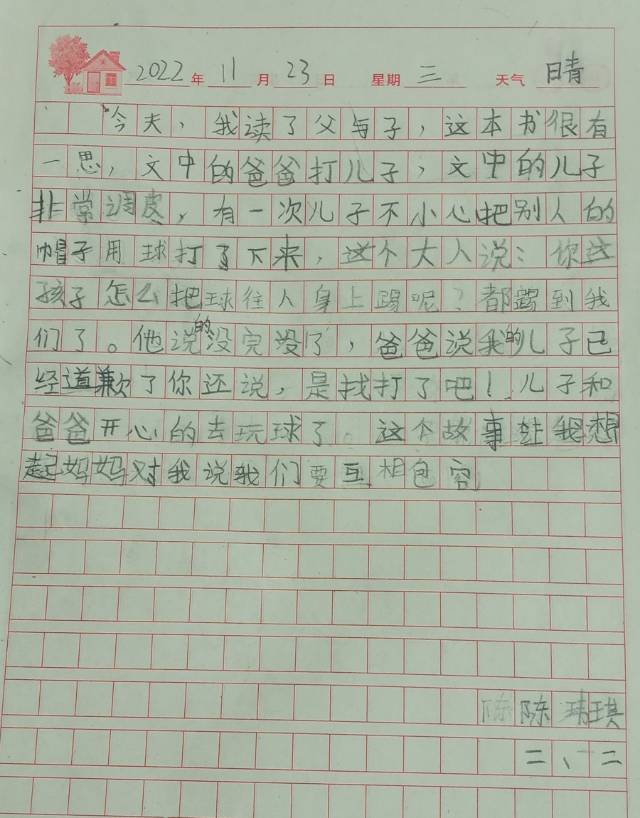 2022年 11月 23日 星期 三 天气 晴
今天，我读了父与子，这本书很有
一思，文中的爸爸打儿子，文中的儿子
非常调皮，有一次儿子不小心把别人的
帽子用球打了下来，这个大人说：你这
孩子怎么把球往人身上踢呢？都踢到我
们了。他说的没完没了，爸爸说我的儿子已
经道歉了你还说，是找打了吧！儿子和
爸爸开心的去玩球了。这个故事让我想
起妈妈对我说我们要互相包容
陈陈玮琪
二、一二